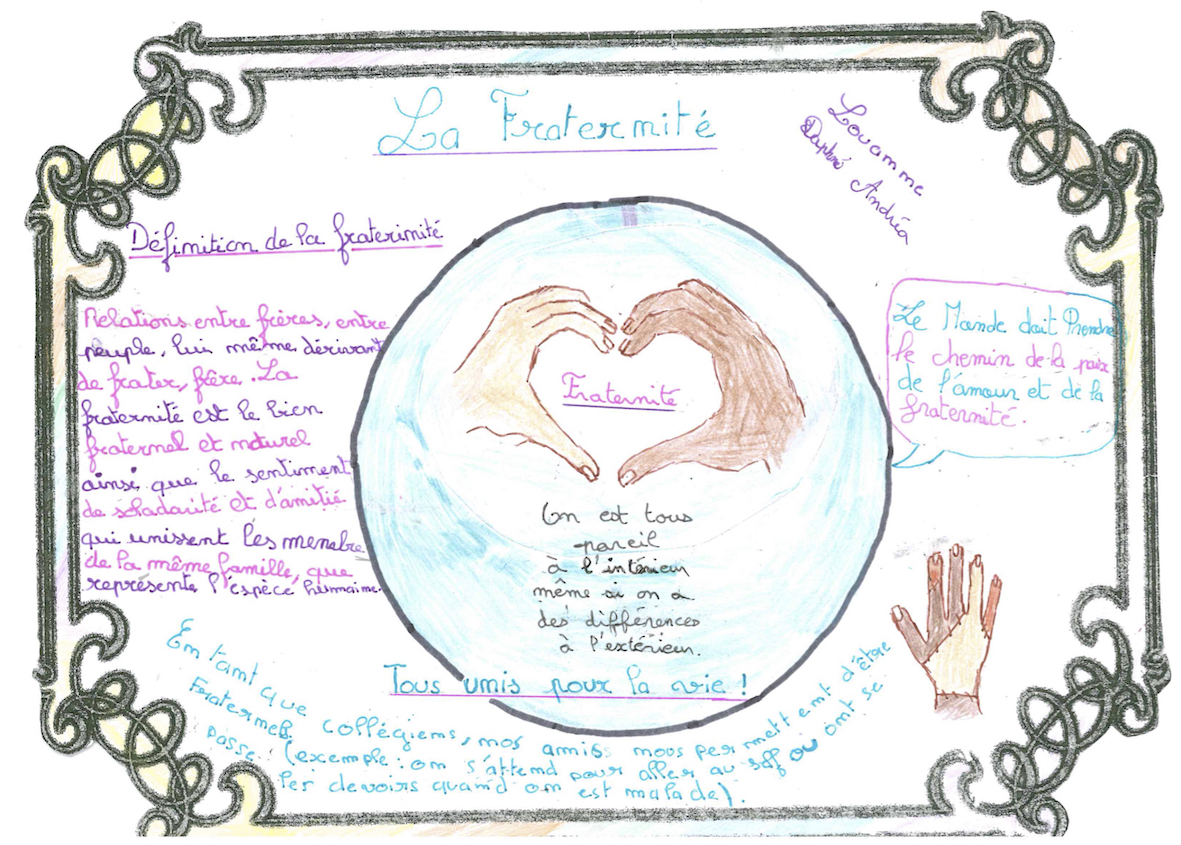 La Fraternité
Louanne
Daphné Andréa
Définition de la fraterinité
Relations entre frères, entre
peuple, lui même dérivant
de frater, frère. La
fraternité est le lien
fraternel et naturel
ainsi que le sentiment
de solidarité et d'amitié
qui unissent les membre
de la même famille, que
représente l'espèce humaine.
Fraternité
On est tous
pareil
à l'intérieur
même si on a
des différences
à l'extérieur.
Tous unis pour la vie !
Le Monde doit Prendre
le chemin de la paix
de l'amour et de la
fraternité.
En tant que collégiens, nos amis nous permettent d'être
Fraternel. (exemple : on s'attend pour aller au self ou ont se
passe les devoirs quand on est malade).